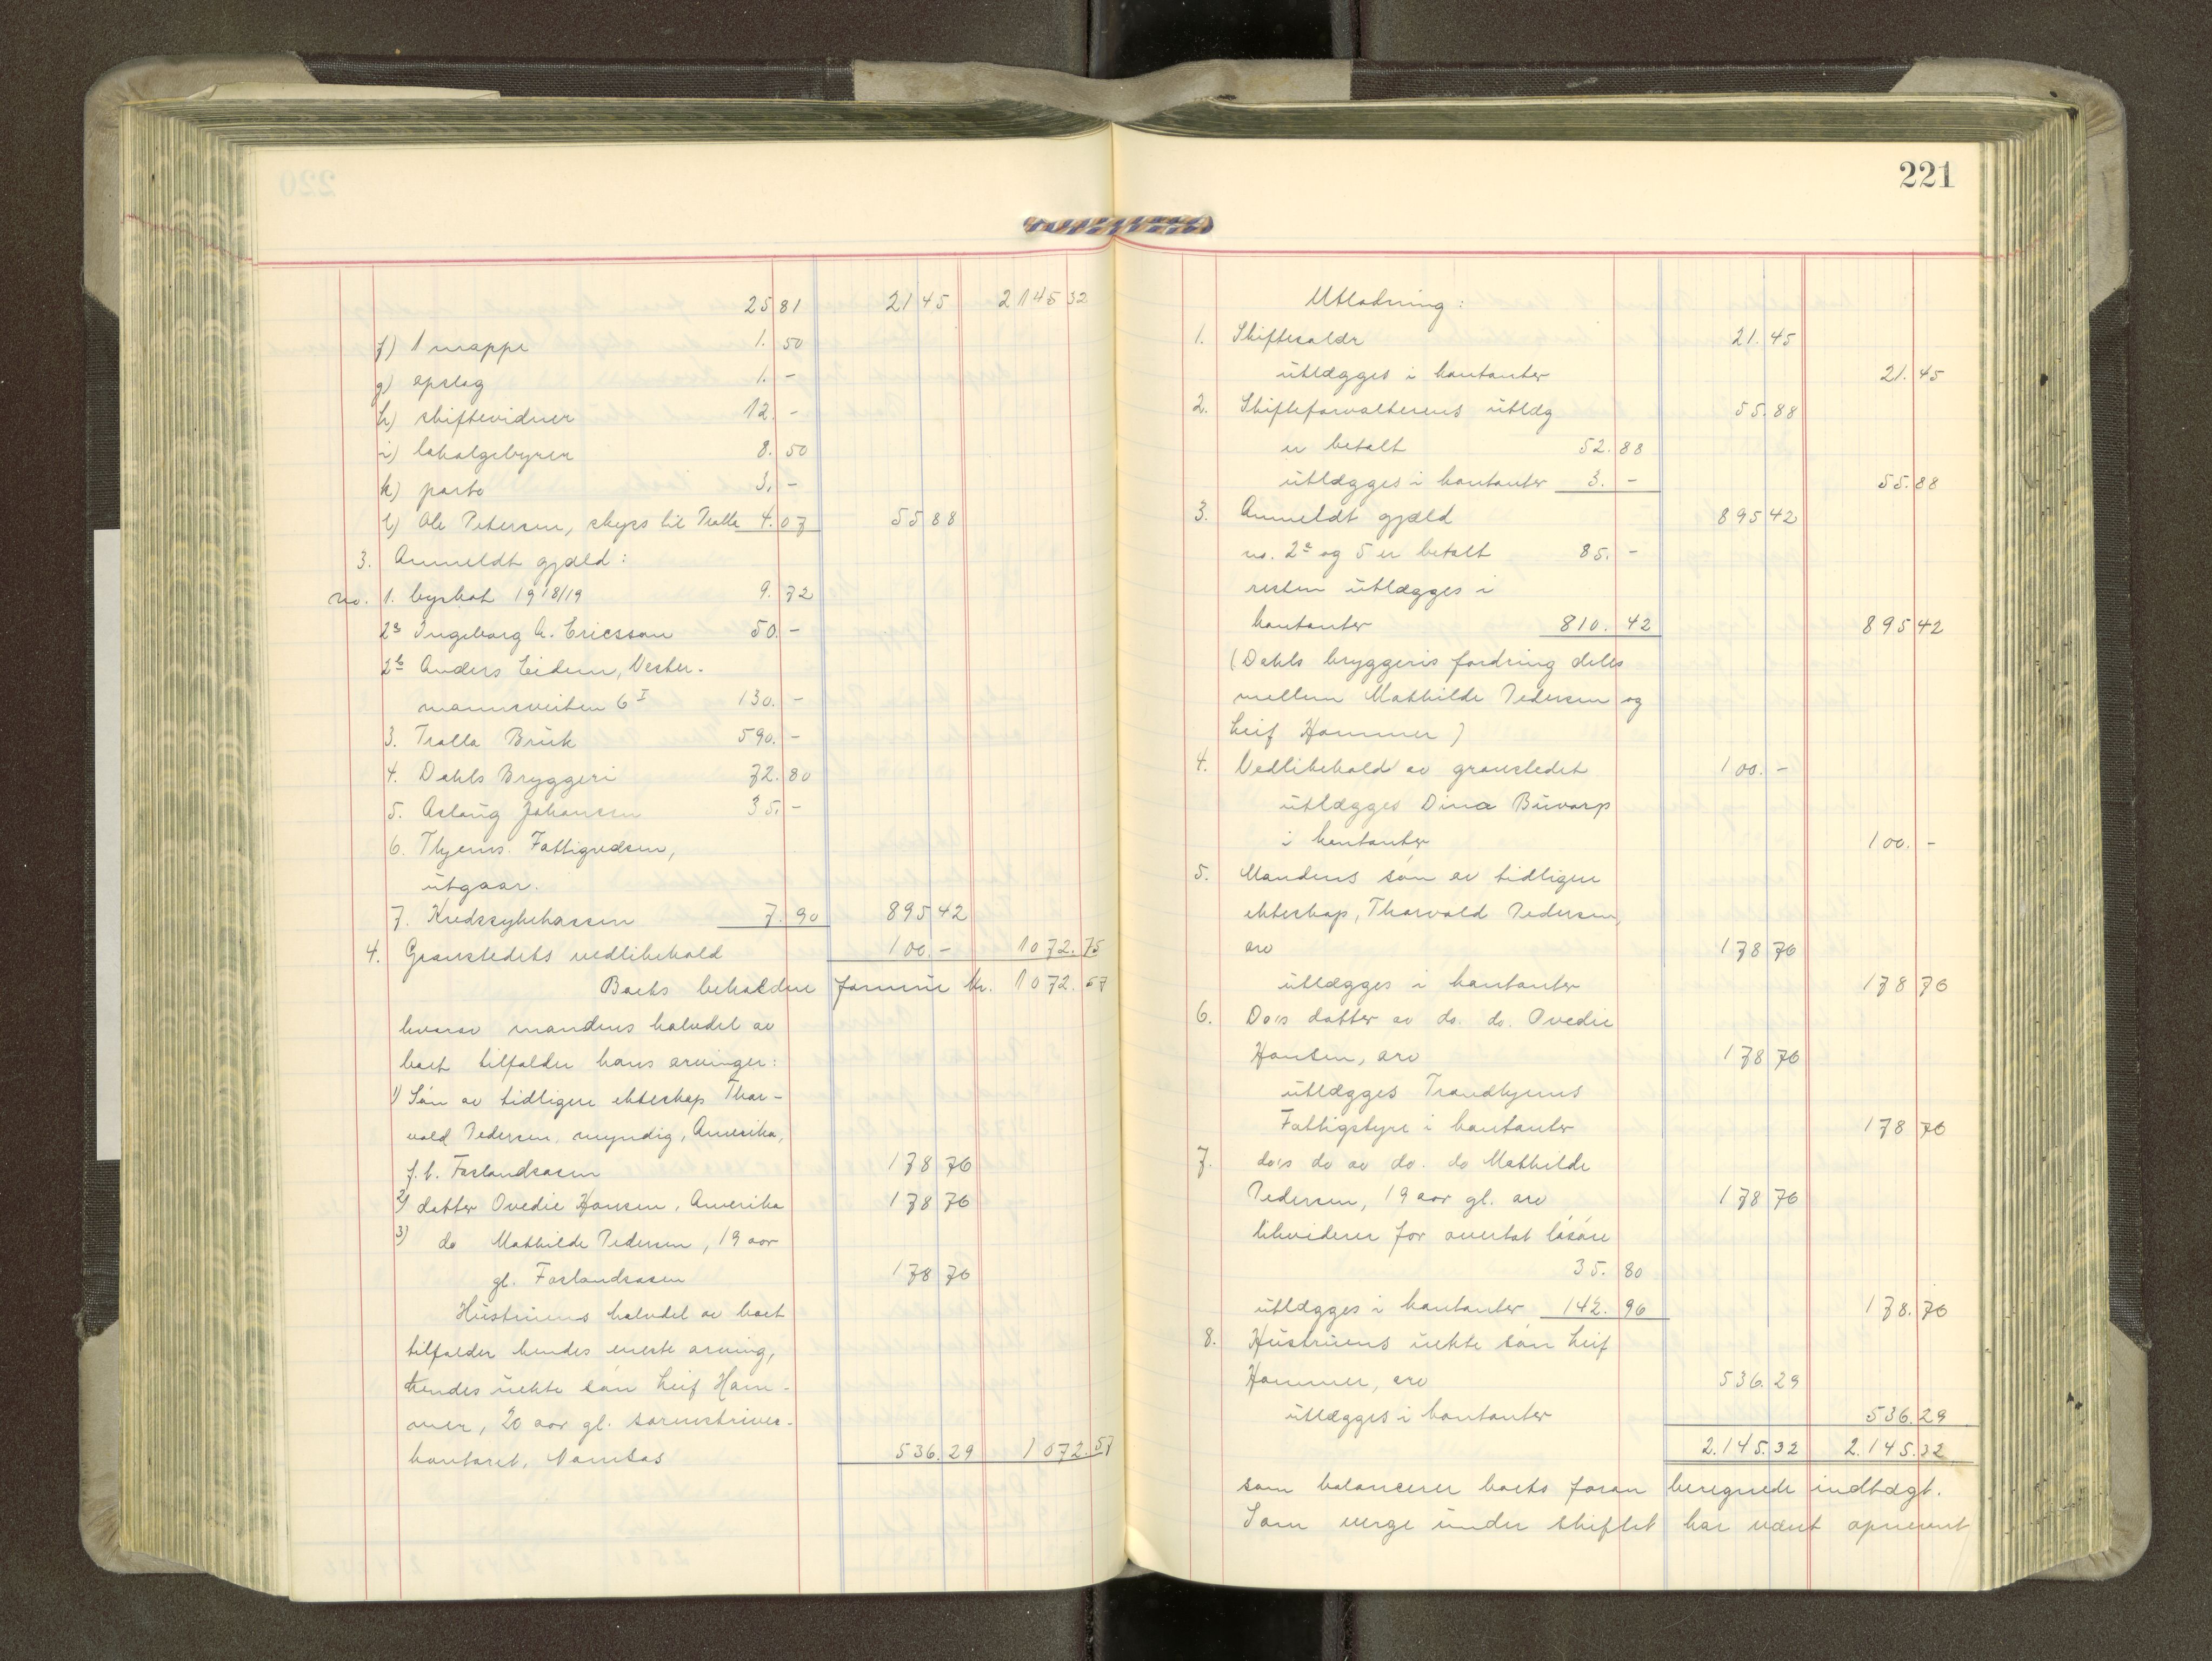 25 81 21 45 2145 32
f) 1 mappe 1. 50
g) opslag 1. -
h) skiftevidner 12. -
i) lokalgebyrer 8. 50
k) porto 3. -
l) Ole Petersen, skyss til Tralla 4.07 55 88
3. Anmeldt gjæld:
no. 1. byskat 1918/19 9. 72
2a Ingeborg A. Ericsson 50. -
2b Anders Eidem, Vester-
mannsveiten 6 I 130. -
3. Tralla Bruk 590. -
4. Dahls Bryggeri 72. 80
5. Aslaug Johansen 35. -
6. Thjems. Fattigvæsen,
utgaar.
7. Kredssykekassen 7. 90 895 42
4. Gravstedets vedlikehold 100. - 1072. 75
Boets beholdne formue kr. 1072. 57
hvorav mandens halvdel av
boet tilfalder hans arvinger:
1) Søn av tidligere ekteskap Thor-
vald Pedersen, myndig, Amerika,
f. t. Foslandsosen 178 76
2) datter Ovedie Hansen, Amerika 178 76
3) do Mathilde Pedersen, 19 aar
gl. Foslandsosen 178 76
Hustruens halvdel av boet
tilfalder hendes eneste arving,
hendes uekte søn Leif Ham-
mer, 20 aar gl. sorenskriver-
kontoret, Namsos 536. 29 1072. 57
221
Utlodning:
1. Skiftesaldr 21. 45
utlægges i kontanter 21. 45
2. Skifteforvalterens utlæg 55. 88
er betalt 52. 88
utlægges i kontanter 3. - 55. 88
3. Anmeldt gjæld 895 42
no. 2a og 5 er betalt 85. -
resten utlægges i
kontanter 810. 42 895 42
(Dahls bryggeris fordring deles
mellem Mathilde Pedersen og
Leif Hammer)
4. Vedlikehold av gravstedet 100. -
utlægges Dina Buvarp
i kontanter 100. -
5. Mandens søn av tidligere
ekteskap, Thorvald Pedersen,
arv 178 76
utlægges i kontanter 178 76
6. Do's datter av do. do. Ovedie
Hansen, arv 178 76
utlægges Trondhjems
Fattigstyre i kontanter 178 76
7. do's do av do. do Mathilde
Pedersen, 19 aar gl. arv 178 76
likviderer for overtat løsøre
35. 80
utlægges i kontanter 142. 96 178. 76
8. Hustruens uekte søn Leif
Hammer, arv 536. 29
utlægges i kontanter 536. 29
2.145. 32 2.145. 32
som balancerer boets foran beregnede indtægt.
Som verge under skiftet har været opnevnt